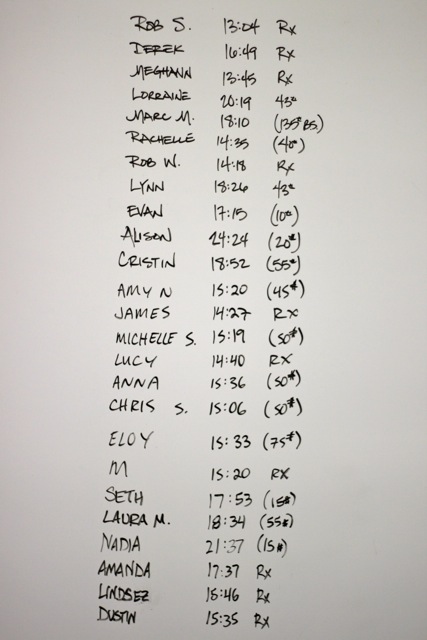 ROB S. 13:04 Rx
DEREK 16:49 Rx
MEGHANN 13:45 Rx
LORRAINE 20:19 43#
MARC M. 18:10 (135# BS.)
RACHELLE 14:35 (40#)
ROB W. 14:18 Rx
LYNN 18:26 43#
EVAN 17:15 (10#)
ALISON 24:24 (20#)
CRISTIN 18:52 (55#)
AMY N 15:20 (45#)
JAMES 14:27 RX
MICHELLE S. 15:19 (50#)
LUCY 14:40 RX
ANNA 15:36 (50#)
CHRIS S. 15:06 (50#)
ELOY 15:33 (75#)
M 15:20 RX
SETH 17:53 (15#)
LAURA M. 18:34 (55#)
NADIA 21:37 (15#)
AMANDA 17:37 Rx
LINDSEZ 15:46 Rx
DUSTIN 15:35 RX